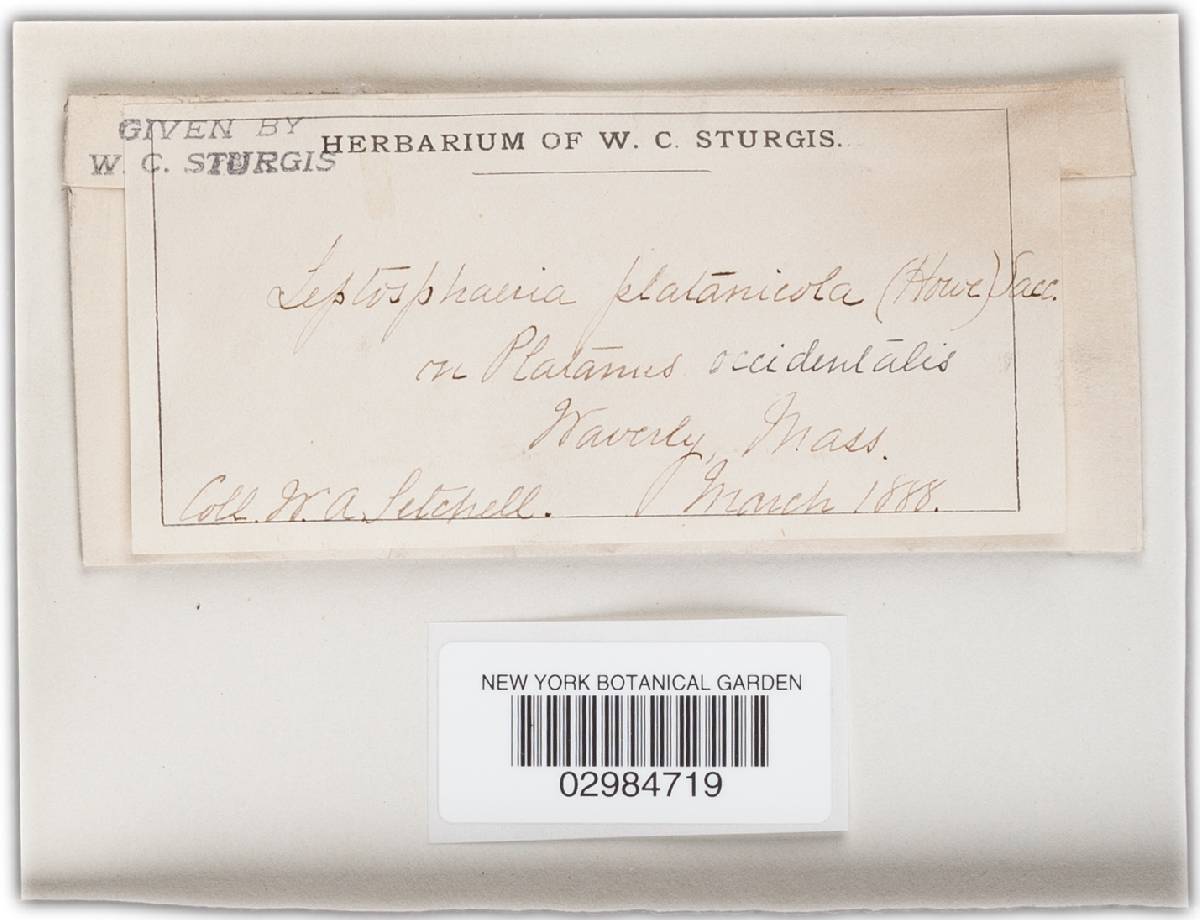 GIVEN BY
W. C. STURGIS
HERBARIUM OF W. C. STURGIS.
Leptosphaeria platanicola (Howe) Sacc.
on Platanus occidentalis
Waverly, Mass.
Coll. W. A. Setchell. March 1888.
NEW YORK BOTANICAL GARDEN
02984719